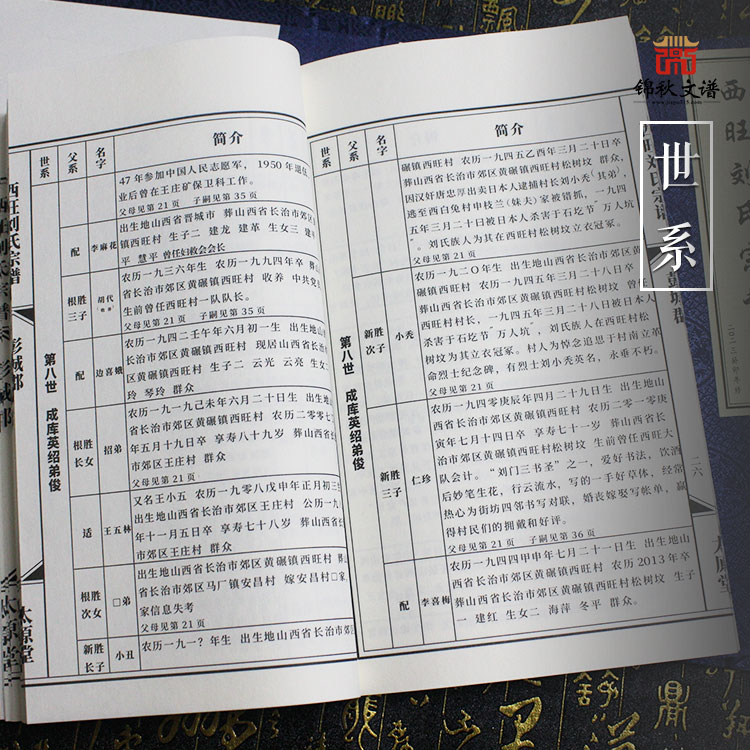 锦秋文谱
世系
世系
父系
名字
简介
47年参加中国人民志愿军，1950年退伍
业后曾在王庄矿保卫科工作。
父母见第21页 子嗣见第35页
配
李麻花
出生地山西省晋城市 葬山西省长治市郊区
镇西旺村 生子二 建龙 建革 生女三 建平
平 慧平 曾任妇教会会长
根胜
三子
胡代
农历一九三六年生 农历一九九四年卒 葬
省长治市郊区黄碾镇西旺村 收养 中共党
生前曾任西旺村一队队长。
父母见第21页 子嗣见第35页
配
边喜娥
农历一九四二壬午年六月初一生 出生地山
长治市郊区黄碾镇西旺村 现居山西省长治
区黄碾镇西旺村 生子二 云光 云亮 生女二
玲 琴玲 群众
根胜
长女
招弟
农历一九一九己未年六月二十日生 出生地
西省长治市郊区黄碾镇西旺村 农历二零零七
年五月十九日卒 享寿八十九岁 葬山西省长
市郊区王庄村 群众
父母见第21页
适
王五林
又名王小五 农历一九零八戊申年正月初三
出生地山西省长治市郊区王庄村 公历一九
年十一月五日卒 享寿七十八岁 葬山西省长
市郊区王庄村 群众
根胜
次女
□弟
出生地山西省长治市郊区黄碾镇西旺村 葬
西省长治市郊区马厂镇安昌村 嫁安昌村□家，
家信息失考
父母见第21页
新胜
长子
小丑
农历一九一？年生 出生地山西省长治市郊区
第八世 成库英绍弟俊
西旺刘氏宗谱
彭城郡
太原堂
世系
父系
名字
简介
碾镇西旺村 农历一九四五乙酉年三月二十日卒
葬山西省长治市郊区黄碾镇西旺村松树坟 群众，
因汉奸唐忠厚出卖日本人逮捕村长刘小秃（其弟），
逃至西白兔村申枝兰（妹夫）家被错抓，一九四
五年三月二十日被日本人杀害于石圪节“万人坑
”。刘氏族人为其在西旺村松树坟立衣冠冢。
父母见第21页
新胜
次子
小秃
农历一九二〇年生 出生地山西省长治市郊区黄
碾镇西旺村 农历一九四五年三月二十八日卒
葬山西省长治市郊区黄碾镇西旺村松树坟 曾任
西旺村村长，一九四五年三月二十八日被日本人
杀害于石圪节“万人坑”，刘氏族人在西旺村松
树坟为其立衣冠冢。村人为悼念追思于村南立革
命烈士纪念碑，有烈士刘小秃英名，永垂不朽。
父母见第21页
新胜
三子
仁珍
农历一九四零庚辰年四月二十九日生 出生地山
西省长治市郊区黄碾镇西旺村 农历二零一零庚
寅年七月十四日卒 享寿七十一岁 葬山西省长
治市郊区黄碾镇西旺村松树坟 生前曾任西旺大
队会计。“刘门三书圣”之一，爱好书法，饮酒
后妙笔生花，行云流水，写的一手好草体，经常
热心为街坊四邻书写对联，婚丧嫁娶写帐单，赢
得村民们的拥戴和好评。
父母见第21页 子嗣见第36页
配
李喜梅
农历一九四四甲申年七月二十一日生 出生地山
西省长治市郊区黄碾镇西旺村 农历2013年卒
葬山西省长治市郊区黄碾镇西旺村松树坟 生子
一 建红 生女二 海萍 冬平 群众。
第八世 成库英绍弟俊
二六
太原堂